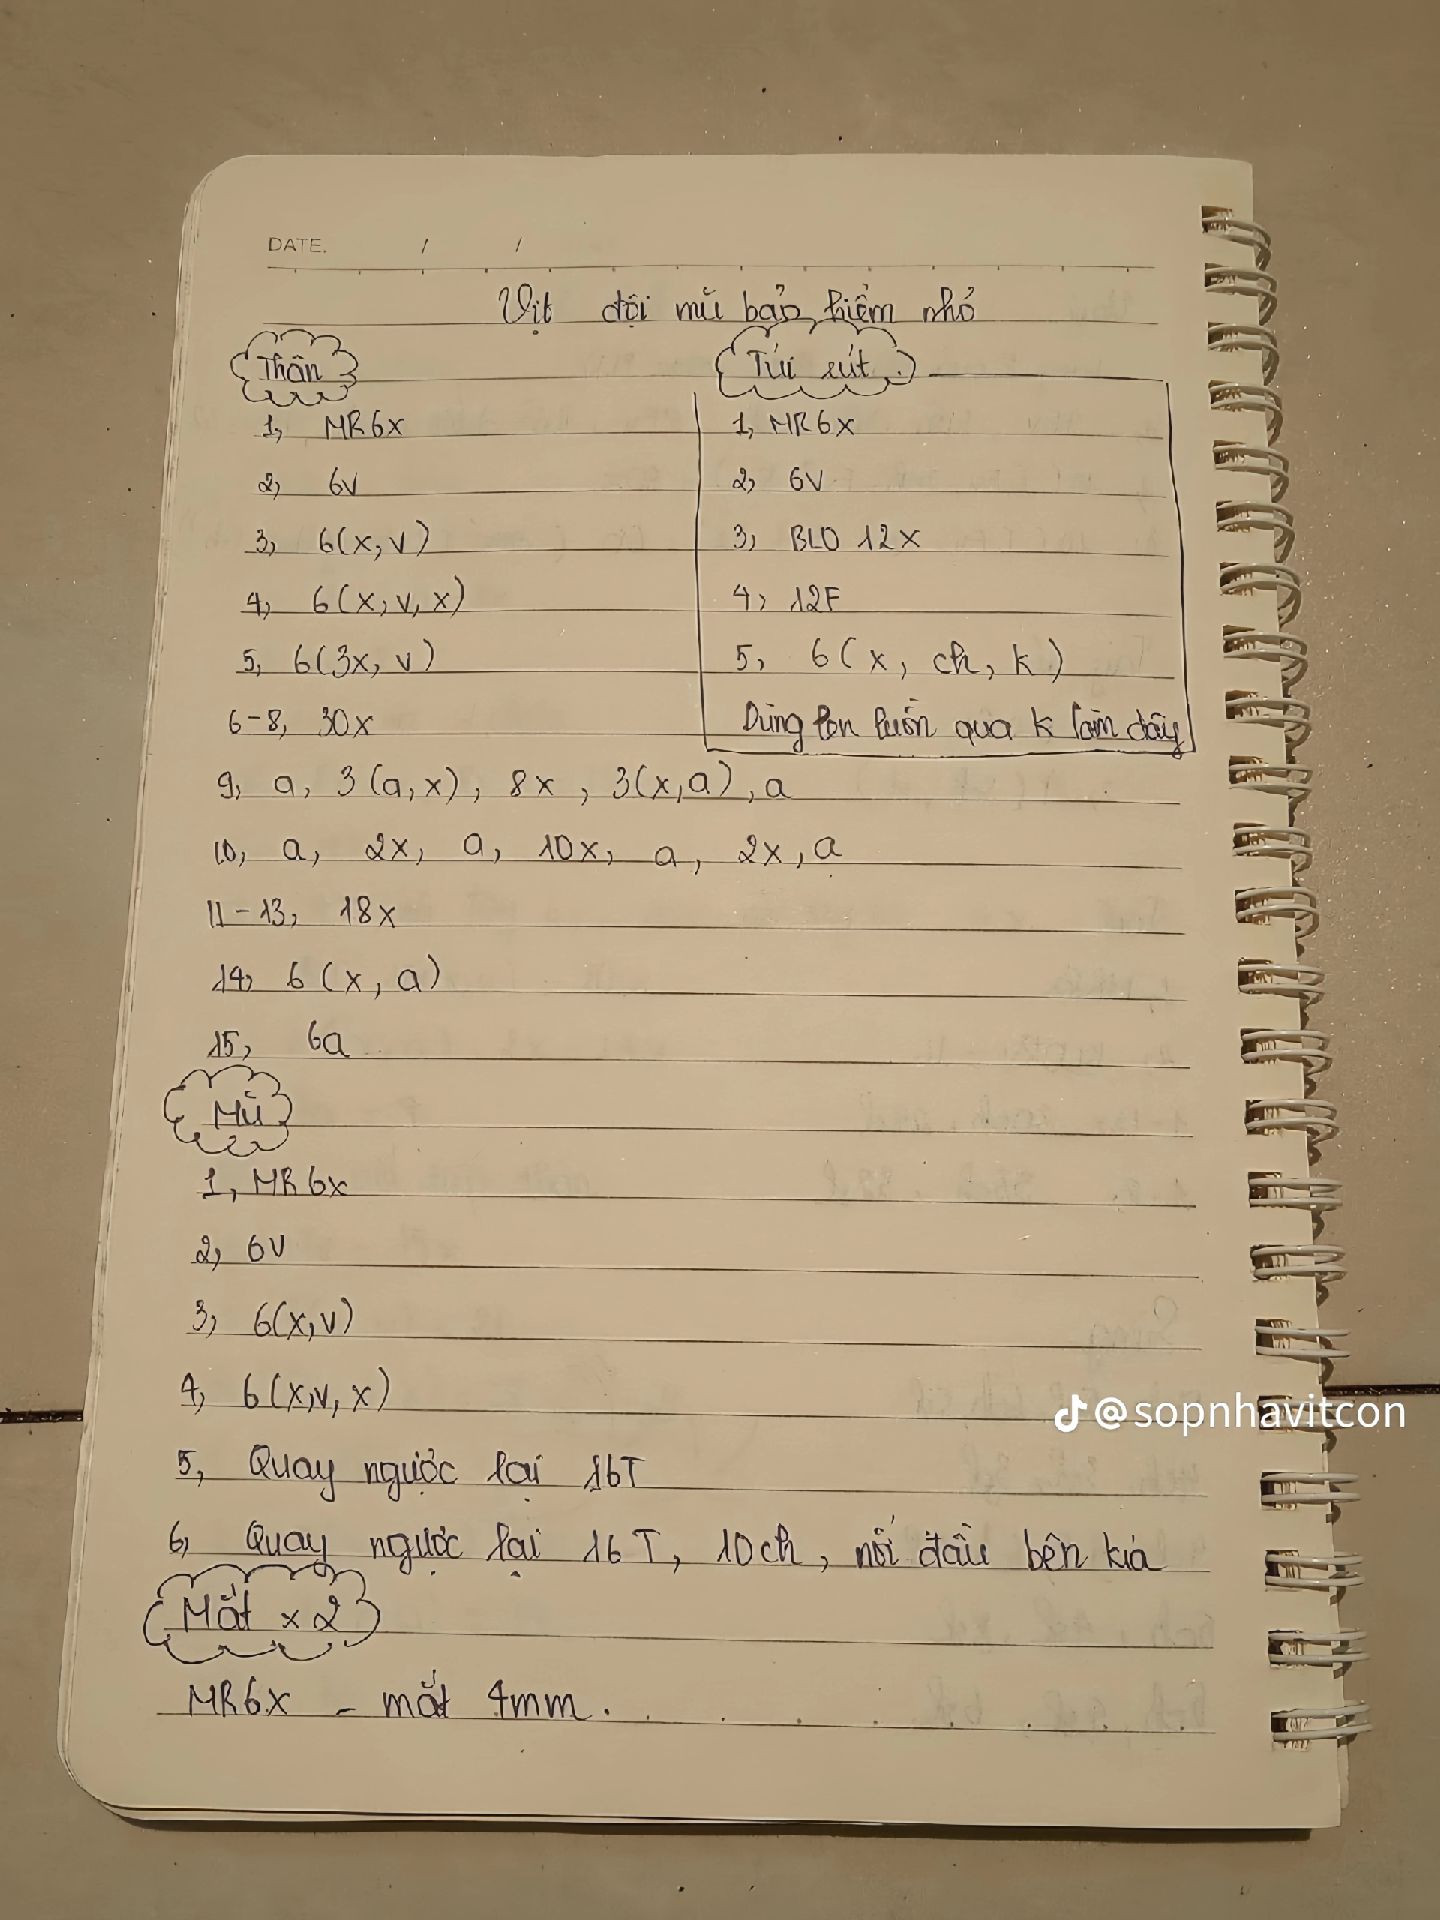 DATE. / /
Vịt đội mũ bảo hiểm nhỏ
Thân
1, MR6x
2, 6V
3, 6(x,v)
4, 6(x,v,x)
5, 6(3x,v)
6-8, 30x
Túi rút
1, MR6x
2, 6V
3, BLO 12x
4, 12F
5, 6(x, ch, k)
Dùng len luồn qua k làm dây
9, a, 3(a,x), 8x, 3(x,a), a
10, a, 2x, a, 10x, a, 2x, a
11-13, 18x
14, 6(x,a)
15, 6a
Mũ
1, MR6x
2, 6V
3, 6(x,v)
4, 6(x,v,x)
5, Quay ngược lại 16T
6, Quay ngược lại 16T, 10ch, nối đầu bên kia
Mắt x2
MR6x - mắt 4mm.
@sopnhavitcon